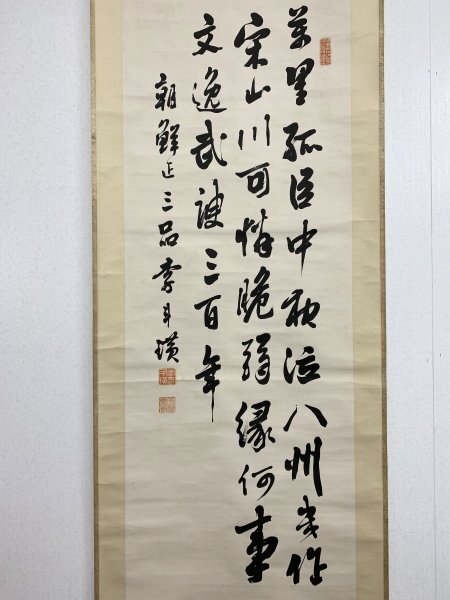 萬里孤臣中夜泣八州幾作
宋山川可憐脆弱緣何事
文逸武三百年
朝鮮正三品李斗璜